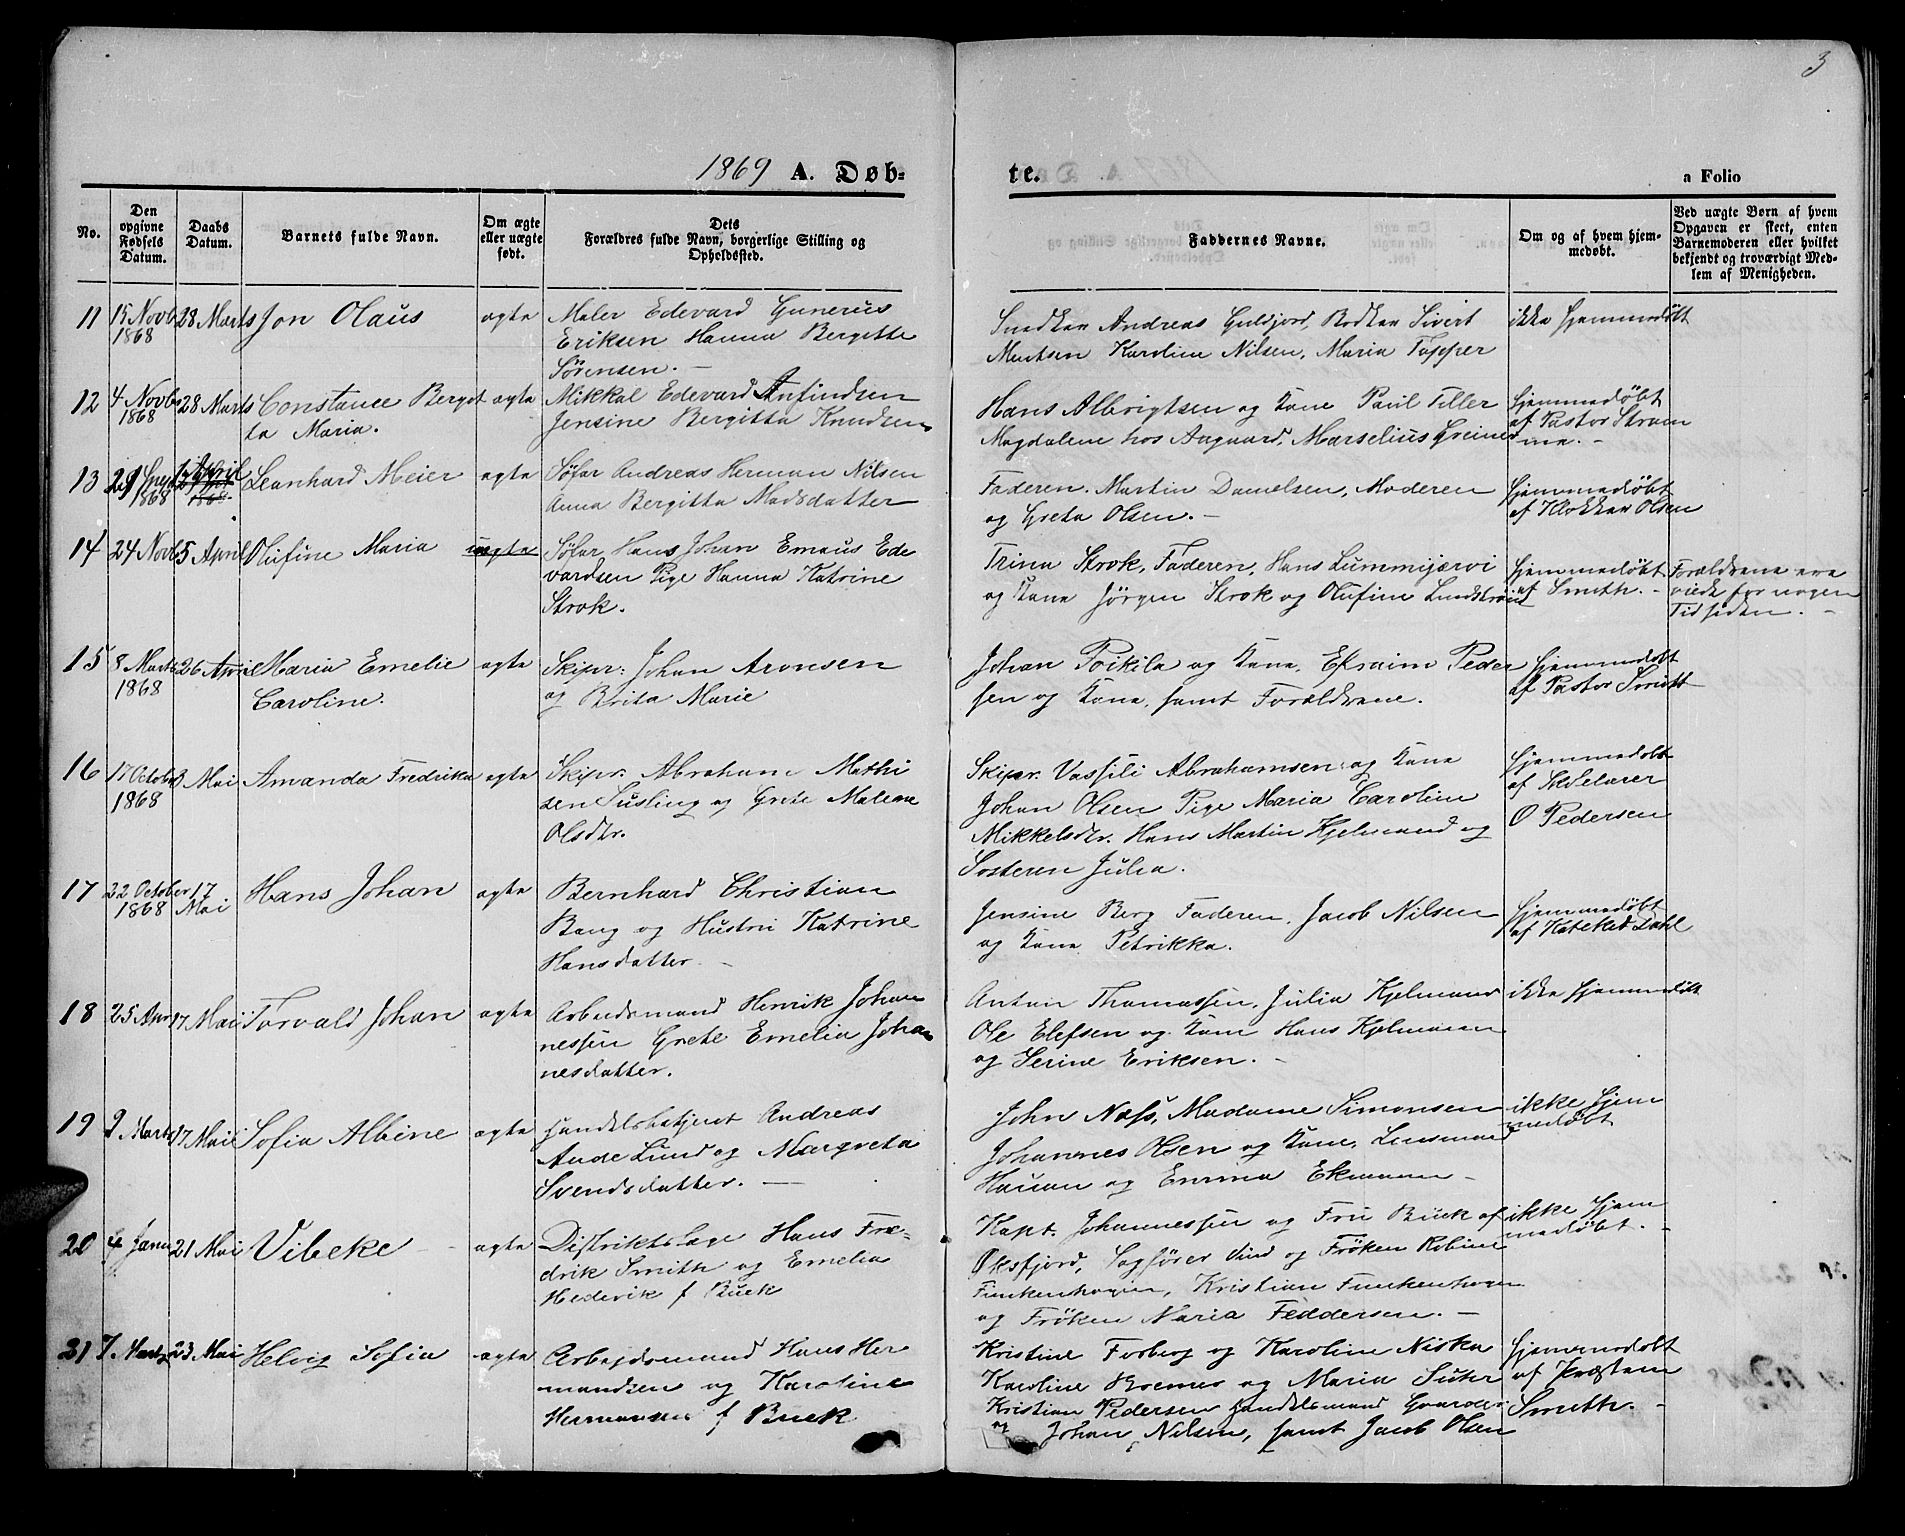 3
1869 A. Døb-
te.
a Folio
No.
Den opgivne Fødsels Datum.
Daabs Datum.
Barnets fulde Navn.
Om ægte eller uægte født.
Dets Forældres fulde Navn, borgerlige Stilling og Opholdssted.
Faddernes Navne.
Om og af hvem hjemmedøbt.
Ved uægte Børn af hvem Opgaven er skeet, enten Barnemoderen eller hvilket bekjendt og troværdigt Medlem af Menigheden.
11 15 Novb 28 Marts Jon Olaus ægte Maler Edevard Gunerus
1868 Eriksen Hanna Bergitte
Sørensen. –
Snedker Andreas Guldjord, Bødker Sivert ikke hjemmedöbt
Mentsen Karoline Nilsen, Maria Tapper
12 4 Novb 28 Marts Constance Bergit ægte Mikkal Edevard Anfindsen
1868 ta Maria. Jensine Bergitta Knudsen
Hans Albrigtsen og Kone Paul Tiller hjemmedöbt
Magdalene hos Aagaard, Marselius Greiner af Pastor Strøm
me. –
13 29 1868 April Leonhard Meier ægte Søfar Andreas Herman Nilsen
Anna Bergitta Madsdatter
Faderen. Martin Danielsen, Moderen hjemmedöbt
og Greta Olsen. – af Klokker Olsen
14 24 Novb 5 April Olufine Maria uægte Søfar Hans Johan Emaus Ede
vardsen Pige Hanna Katrine
Strok.
Trina Strok, Faderen, Hans Lummijærvi hjemmedöbt Forældrene ere
og Kone Jörgen Strok og Olufine Lundström af Smith. – viede for nogen
Tid siden. –
15 8 Marts 26 April Maria Emelie ægte Skipr: Johan Aronsen
1868 Caroline. og Brita Marie
Johan Poikila og Kone, Efraim Peder hjemmedöbt
sen og Kone, samt Forældrene. af Pastor Smith
16 17 Octob 3 Mai Amanda Fredrika ægte Skipr. Abraham Mathi
1868 sen Susling og Grete Malene
Olsdtr.
Skipr. Vassili Abrahamsen og Kone hjemmedöbt
Johan Olsen Pige Maria Caroline af Skolelærer
Mikkelsdtr. Hans Martin Kjelmand og O Pedersen
Søsteren Julia.
17 22 October 17 Hans Johan ægte Bernhard Christian
1868 Mai Bang og Hustru Katrine
Hansdatter. –
Jensine Berg Faderen, Jacob Nilsen hjemmedöbt
og Kone Petrikka. af Kateket Dahl
18 25 Apr 17 Mai Torvald Johan ægte Arbeidsmand Henrik Johan
nessen Grete Emelia Johan
nesdatter.
Anton Thomassen, Julia Kjelmand ikke hjemmedöbt
Ole Elefsen og Kone Hans Kjelmann
og Serine Eriksen. –
19 9 Marts 17 Mai Sofia Albine ægte Handelsbetjent Andreas
Aude Lund og Margreta
Svendsdatter. –
John Næss, Madame Simonsen ikke hjem
Johannes Olsen og Kone, Lensmand medöbt
Hauan og Emma Ekmann –
20 4 Janu 21 Mai Vibeke ægte Distriktslæge Hans Fre-
drik Smith og Emelia
Hedevik f Buck
Kapt. Johannessen og Fru Buck af ikke hjem
Öksfjord, Sagfører Lind og Fröken Robine medöbt. –
Funkenhagen, Kristian Funkenhagen
og Fröken Maria Feddersen. –
21 7 Marts 23 Mai Helvig Sofia ægte Arbejdsmand Hans Her
mandsen og Karoline
Hermansen f Buck
Kristine Forberg og Karoline Niska hjemmedöbt
Karoline Boemes og Maria Suhr af Præsten
Kristian Pedersen Handelsmand Smith. –
og Johan Nilsen, samt Jacob Olsen